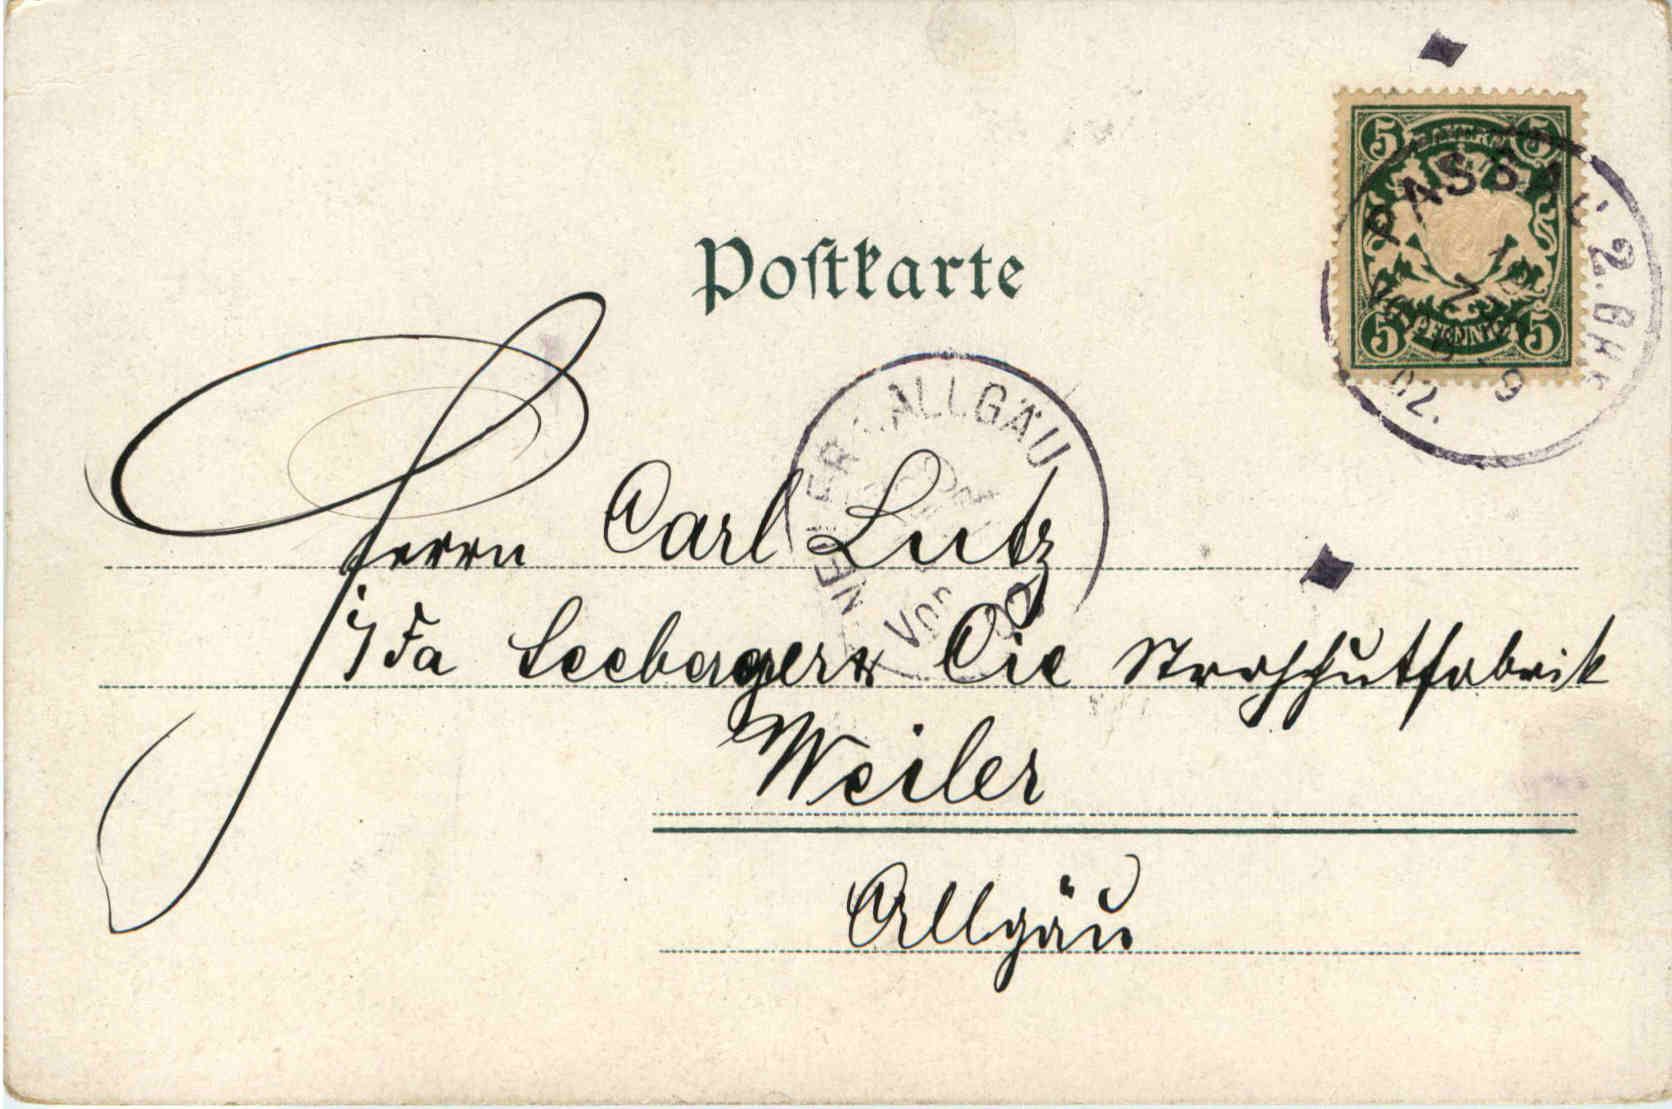 5 BAYERN 5
5 PFENNIG 5
PASSAU 2.
02.
Postkarte
ALLGÄU
VOR
Herrn Carl Lutz
i/Fa Seeberger & Cie Strohhutfabrik
Weiler
Allgäu